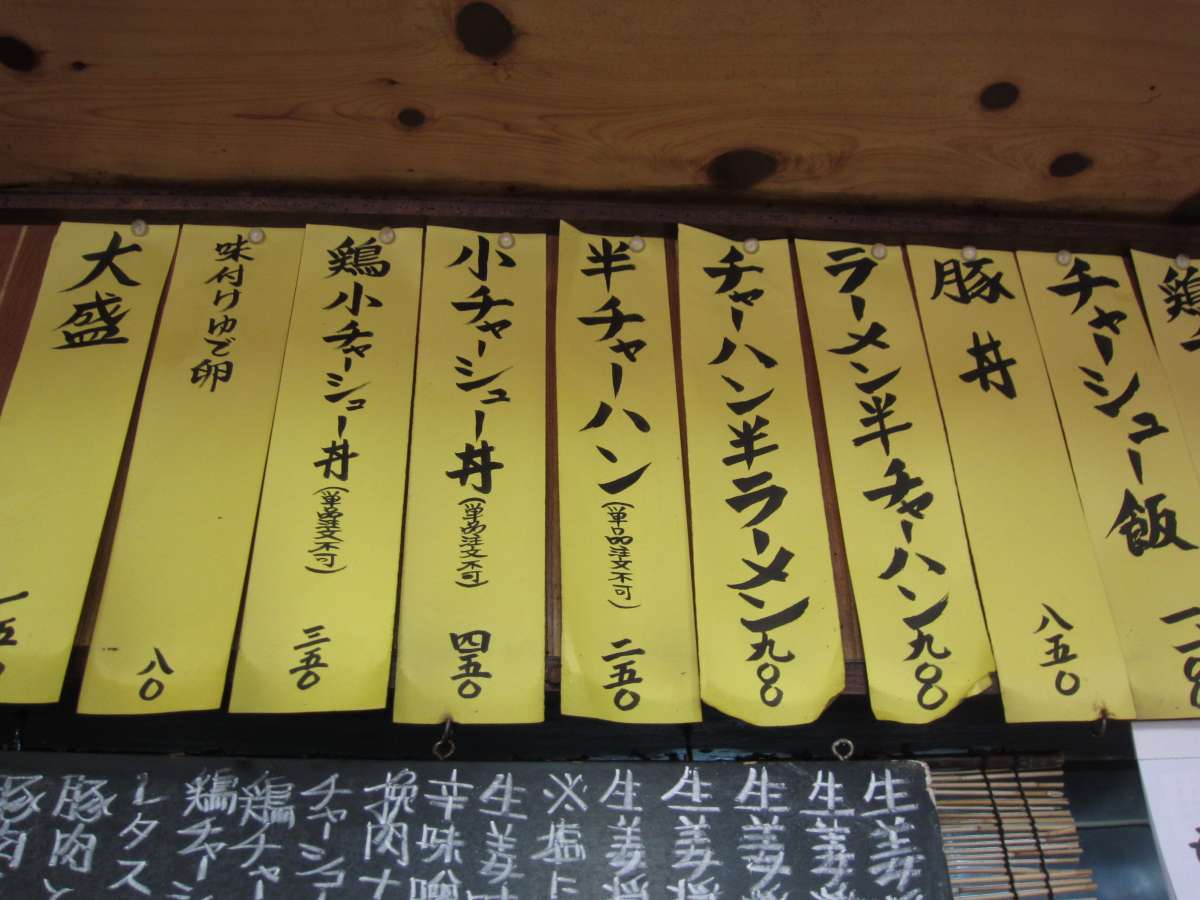 鶏
チャーシュー飯 一一〇〇
豚丼 八五〇
ラーメン半チャーハン 九〇〇
チャーハン半ラーメン 九〇〇
半チャーハン(単品注文不可) 二五〇
小チャーシュー丼(単品注文不可) 四五〇
鶏小チャーシュー丼(単品注文不可) 三五〇
味付けゆで卵 八〇
大盛 一五〇
生姜
生姜
生姜
生姜
生姜
※塩に
生姜
辛味
挽肉ナ
チャーシュー
鶏チャー
鶏チャーシ
レタス
豚肉と
豚肉